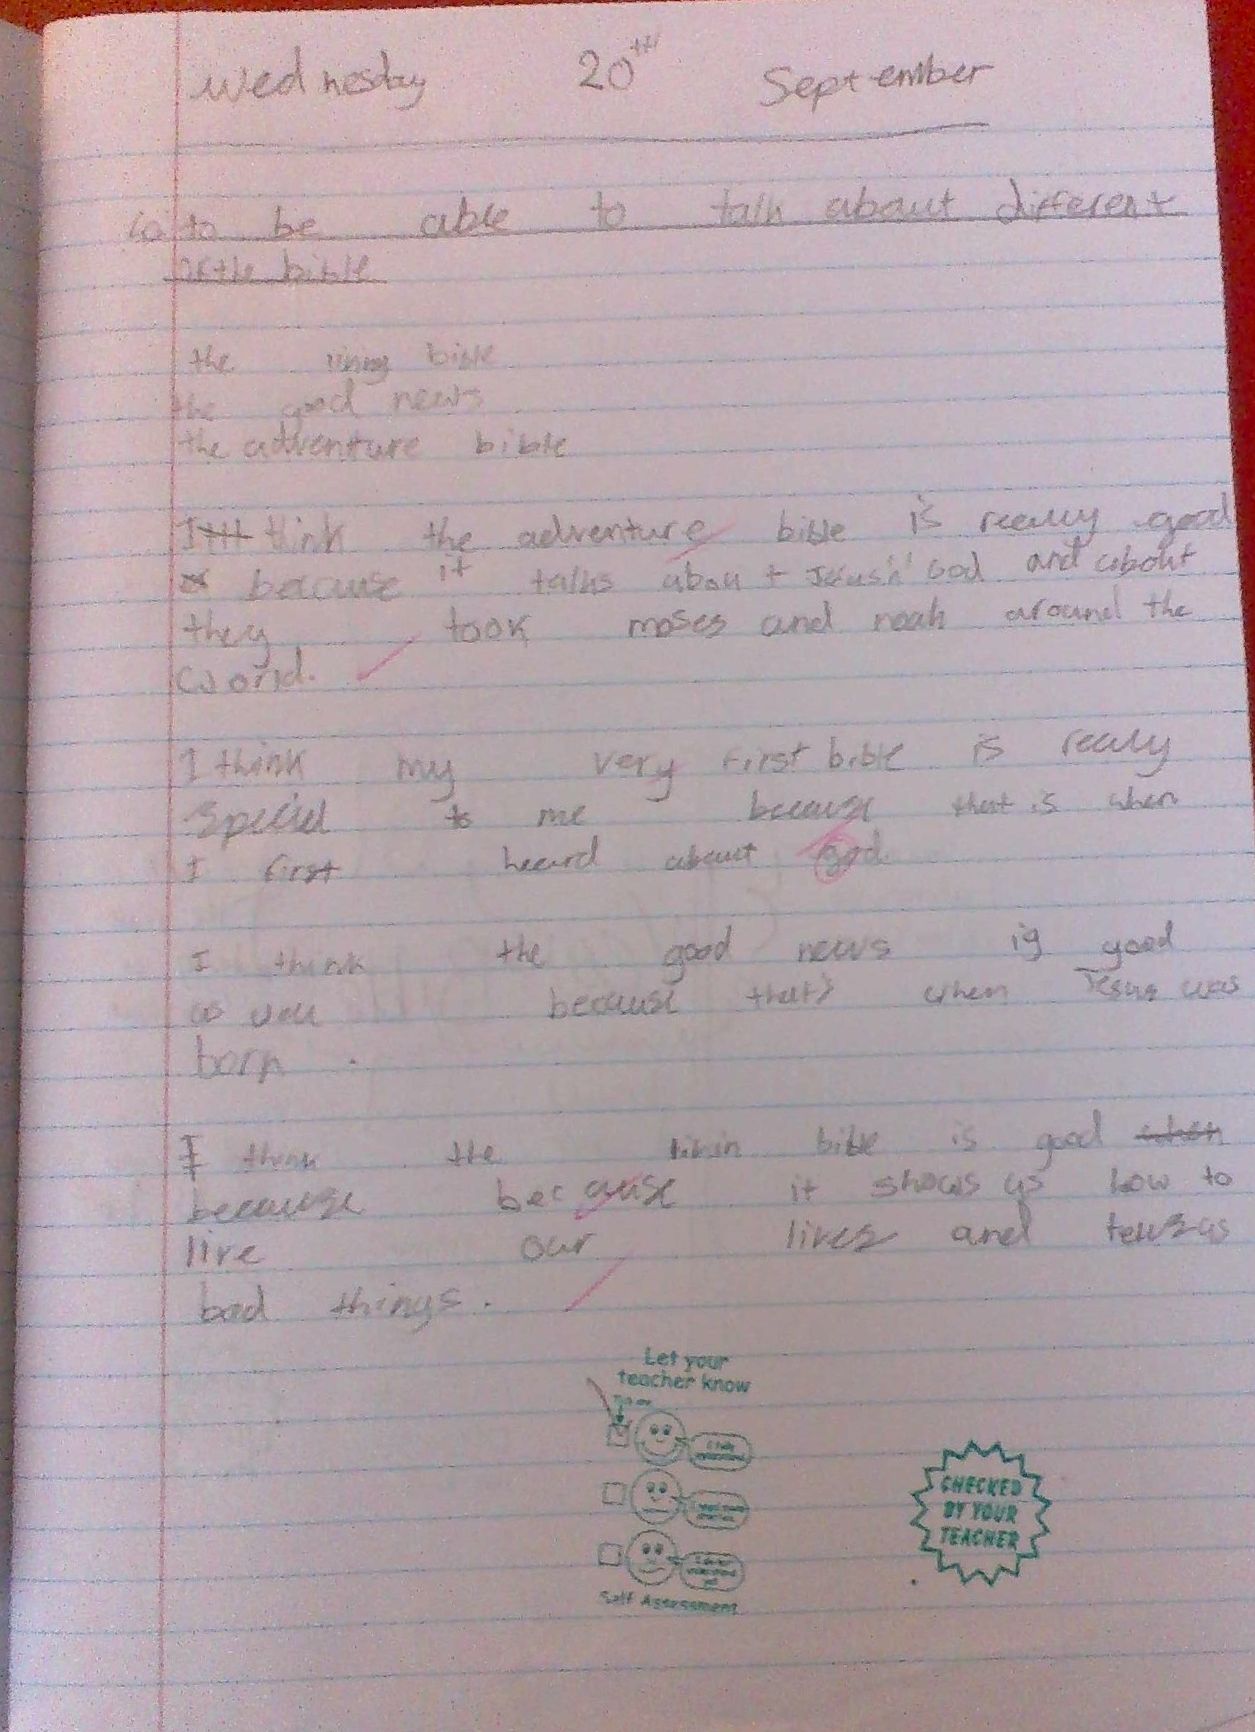 Wednesday 20th September
Lo to be able to talk about different
of the bible
the living bible
the good news
the adventure bible
I think the adventure bible is really good
because it talks about God and about
they took moses and noah around the
world.
I think my very first bible is really
special to me because that is when
I first heard about god.
I think the good news is good
as well because that's when Jesus was
born.
I think the livin bible is good when
because because it shows us how to
live our lives and tells us
bad things.
Let your
teacher know
Tick one
I fully
understand
CHECKED
BY YOUR
TEACHER
Self Assessment